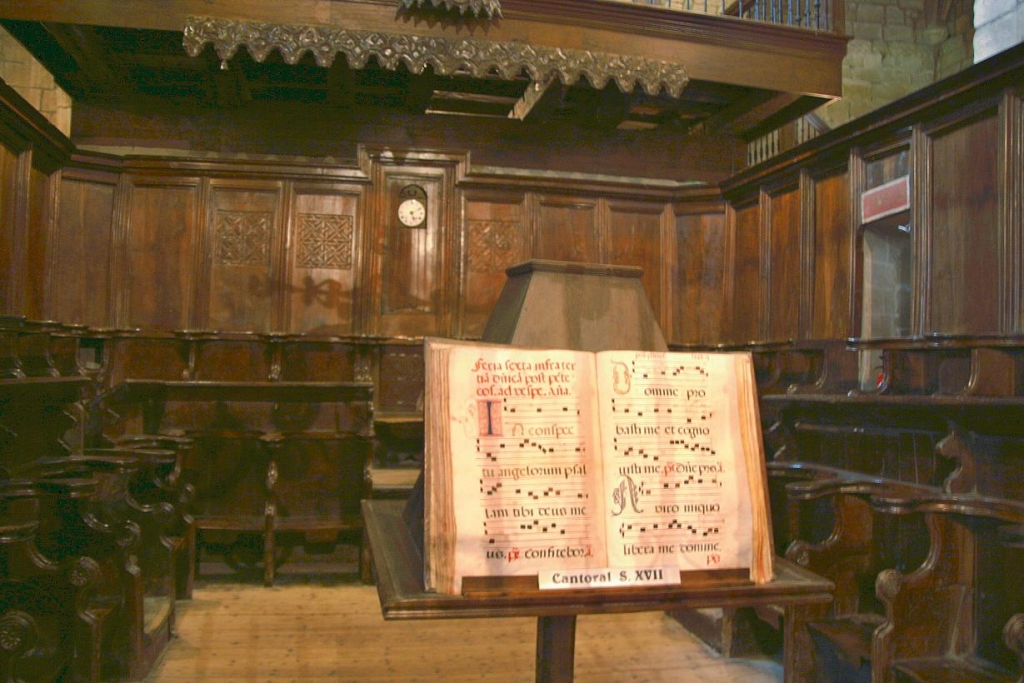 Feria sexta infra ter
tiā dn̄ica post pēte
cos. ad vespe. Aña.
IN conspec
tu angelorum psal
lam tibi deus me
us. ps̄. Confitebor
Domine pro
basti me et cogno
visti me. ps̄. Dñe pro.
A viro iniquo
libera me domine.
ps̄
Cantoral S. XVII